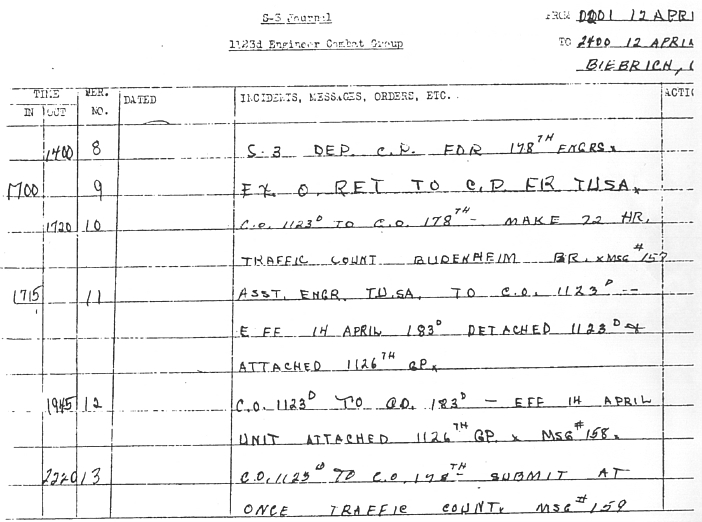 S-3 Journal
1123d Engineer Combat Group
FROM 0001 12 APRI
TO 2400 12 APRIL
BIEBRICH,
TIME MER. DATED INCIDENTS, MESSAGES, ORDERS, ETC. ACTIO
IN OUT NO.
1400 8 S-3 DEP. C.P. FOR 178TH ENGRS.
1700 9 EX. O. RET TO C.P. FR TUSA.
1720 10 C.O. 1123D TO C.O. 178TH - MAKE 22 HR.
TRAFFIC COUNT BUDENHEIM BR. x MSG #157
1715 11 ASST. ENGR. TUSA. TO C.O. 1123D --
EFF 14 APRIL 183D DETACHED 1123D &
ATTACHED 1126TH GP.
1945 12 C.O. 1123D TO CO. 183D - EFF 14 APRIL
UNIT ATTACHED 1126TH GP. x MSG #158.
2220 13 C.O. 1123D TO C.O. 178TH SUBMIT AT
ONCE TRAFFIC COUNT. MSG #159